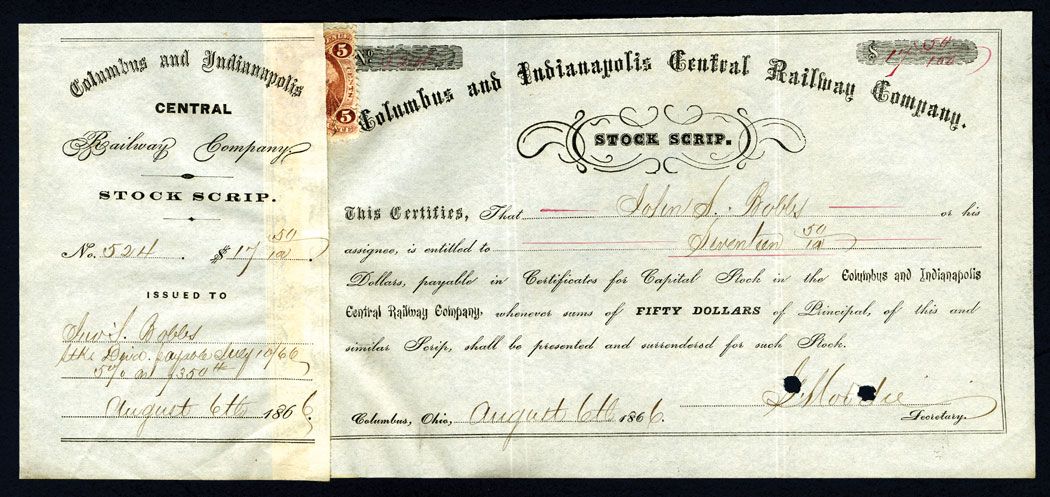 Columbus and Indianapolis
CENTRAL
Railway Company
STOCK SCRIP.
No. 524 . $17 50/10 .
ISSUED TO
Jno S. Bobbs
Stk Divd. payable July 10/66
5% on $350
August 6th 1866.
5 CENTS 5
No 524
$ 17 50/100
Columbus and Indianapolis Central Railway Company.
STOCK SCRIP.
This Certifies, That John S. Bobbs or his
assignee, is entitled to Seventeen 50/10
Dollars, payable in Certificates for Capital Stock in the Columbus and Indianapolis
Central Railway Company, whenever sums of FIFTY DOLLARS of Principal, of this and
similar Scrip, shall be presented and surrendered for such Stock.
Columbus, Ohio, August 6th 1866.
Secretary.